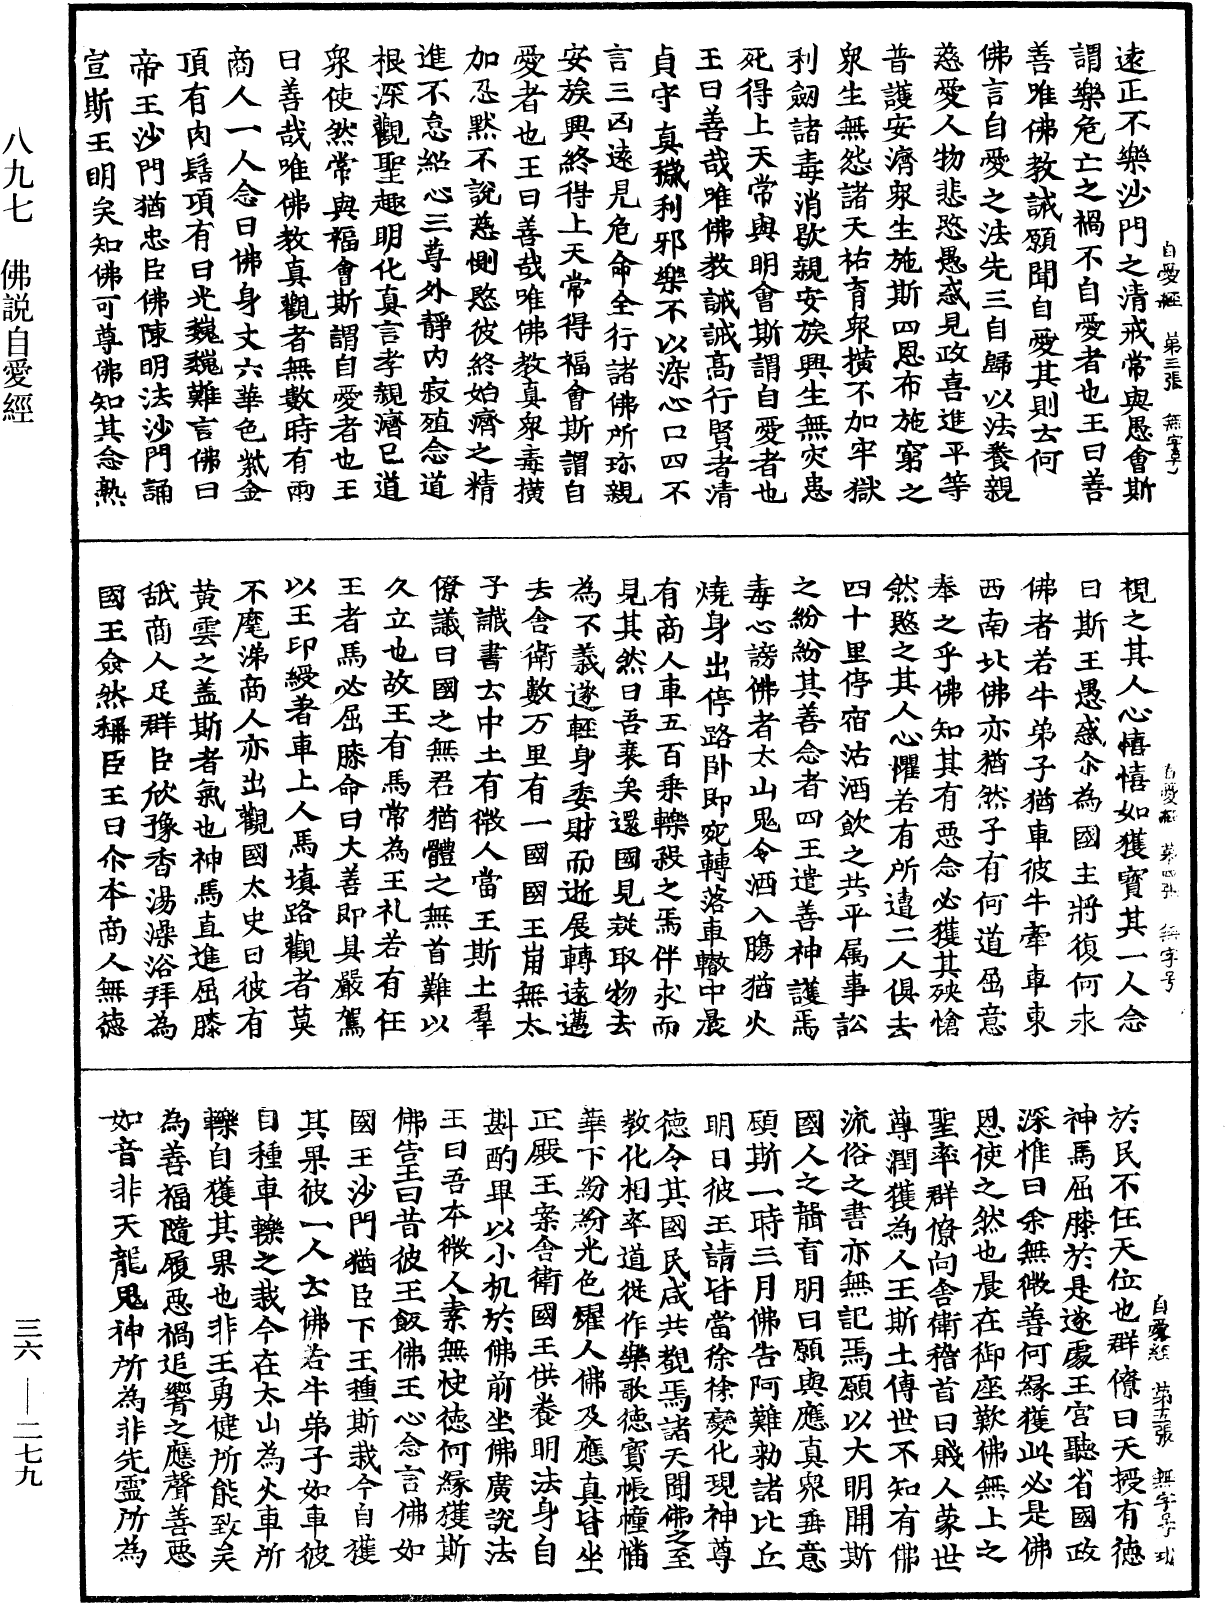 八九七　佛説自愛經
三六——二七九
遠正不樂沙門之清戒常與愚會斯
謂樂危亡之禍不自愛者也王曰善
善唯佛教誡願聞自愛其則去何
佛言自愛之法先三自歸以法養親
慈愛人物悲愍愚惑見政喜進平等
普護安濟衆生施斯四恩布施窮乏
衆生無怨諸天祐育衆橫不加牢獄
利劒諸毒消歇親安族興生無灾患
死得上天常與明會斯謂自愛者也
王曰善哉唯佛教誡誡高行賢者清
貞守真穢利邪樂不以染心口四不
言三凶遠見危命全行諸佛所珎親
安族興終得上天常得福會斯謂自
愛者也王曰善哉唯佛教真衆毒橫
加忍默不說慈惻愍彼終始濟之精
進不怠絕心三尊外靜內寂殖念道
根深觀聖趣明化真言孝親濟已道
衆使然常與福會斯謂自愛者也王
曰善哉唯佛教真觀者無數時有兩
商人一人念曰佛身丈六華色紫金
頂有肉髻項有日光巍巍難言佛曰
帝王沙門猶忠臣佛陳明法沙門誦
宣斯王明矣知佛可尊佛知其念熟
自愛經　第三張　無字号
視之其人心憘憘如獲寳其一人念
曰斯王愚惑尒為國主將復何求
佛者若牛弟子猶車彼牛牽車東
西南北佛亦猶然子有何道屈意
奉之乎佛知其有惡念必獲其殃愴
然愍之其人心懼若有所遺二人俱去
四十里停宿沽酒飲之共平属事訟
之紛紛其善念者四王遣善神護焉
毒心謗佛者太山鬼令酒入膓猶火
燒身出停路卧即宛轉落車轍中晨
有商人車五百乗轢殺之焉伴求而
見其然曰吾衰矣還國見疑取物去
為不義遂輕身委財而逝展轉遠邁
去舍衛數万里有一國國王崩無太
子讖書云中土有微人當王斯土羣
僚議曰國之無君猶體之無首難以
久立也故王有馬常為王礼若有任
王者馬必屈膝命曰大善即具嚴駕
以王印綬著車上人馬填路觀者莫
不麾涕商人亦出觀國太史曰彼有
黄雲之蓋斯者氣也神馬直進屈膝
舐商人足群臣欣豫香湯澡浴拜為
國王僉然稱臣王曰尒本商人無德
自愛經　第四張　無字号
於民不任天位也群僚曰天授有德
神馬屈膝於是遂處王宮聽省國政
深惟曰余無微善何緣獲此必是佛
恩使之然也晨在御座歎佛無上之
聖率群僚向舍衛稽首曰賤人蒙世
尊潤獲為人王斯土傳世不知有佛
流俗之書亦無記焉願以大明開斯
國人之聾盲明日願與應真衆垂意
頋斯一時三月佛告阿難勑諸比丘
明日彼王請皆當徐徐變化現神尊
德令其國民咸共覩焉諸天聞佛之至
教化相率道從作樂歌德寳帳幢幡
華下紛紛光色耀人佛及應真皆坐
正殿王案舍衛國王供養明法身自
斟酌畢以小机於佛前坐佛廣說法
王曰吾本微人素無快德何緣獲斯
佛告王曰昔彼王飯佛王心念言佛如
國王沙門猶臣下王種斯栽今自獲
其果彼一人去佛若牛弟子如車彼
自種車轢之栽今在太山為火車所
轢自獲其果也非王勇健所能致矣
為善福隨履惡禍追響之應聲善惡
如音非天龍鬼神所為非先靈所為
自愛經　第五張　無字号